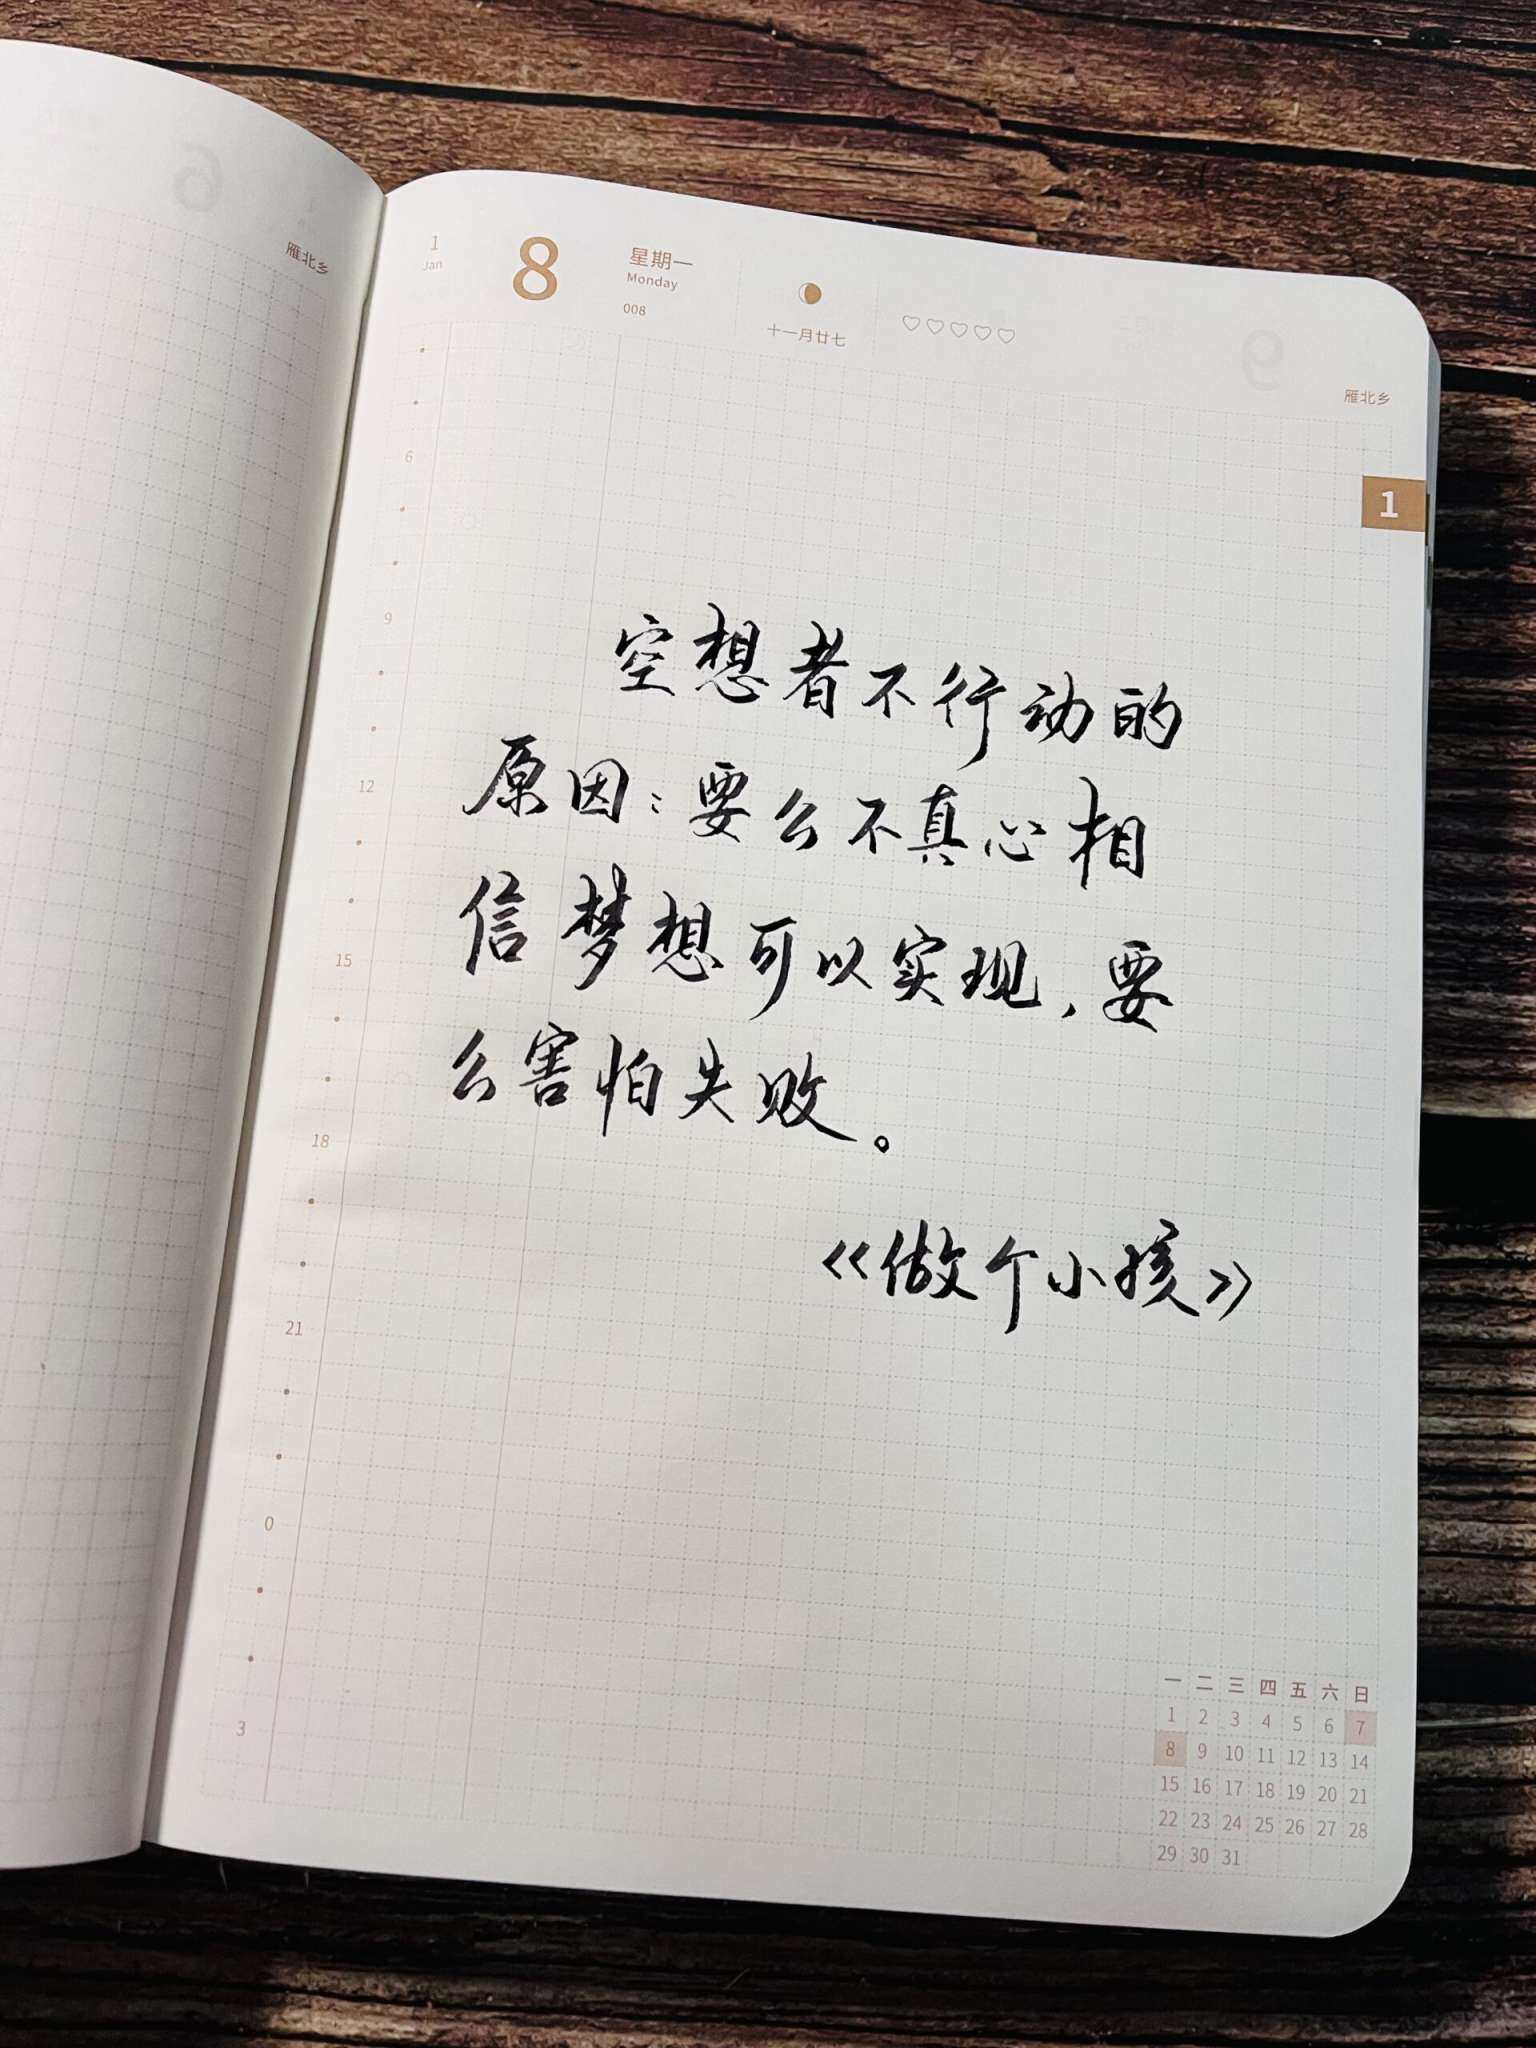 雁北乡
1
Jan
8
星期一
Monday
008
十一月廿七
雁北乡
1
6
9
12
15
18
21
0
3
空想者不行动的
原因：要么不真心相
信梦想可以实现，要
么害怕失败。
《做个小孩》
一 二 三 四 五 六 日
1 2 3 4 5 6 7
8 9 10 11 12 13 14
15 16 17 18 19 20 21
22 23 24 25 26 27 28
29 30 31